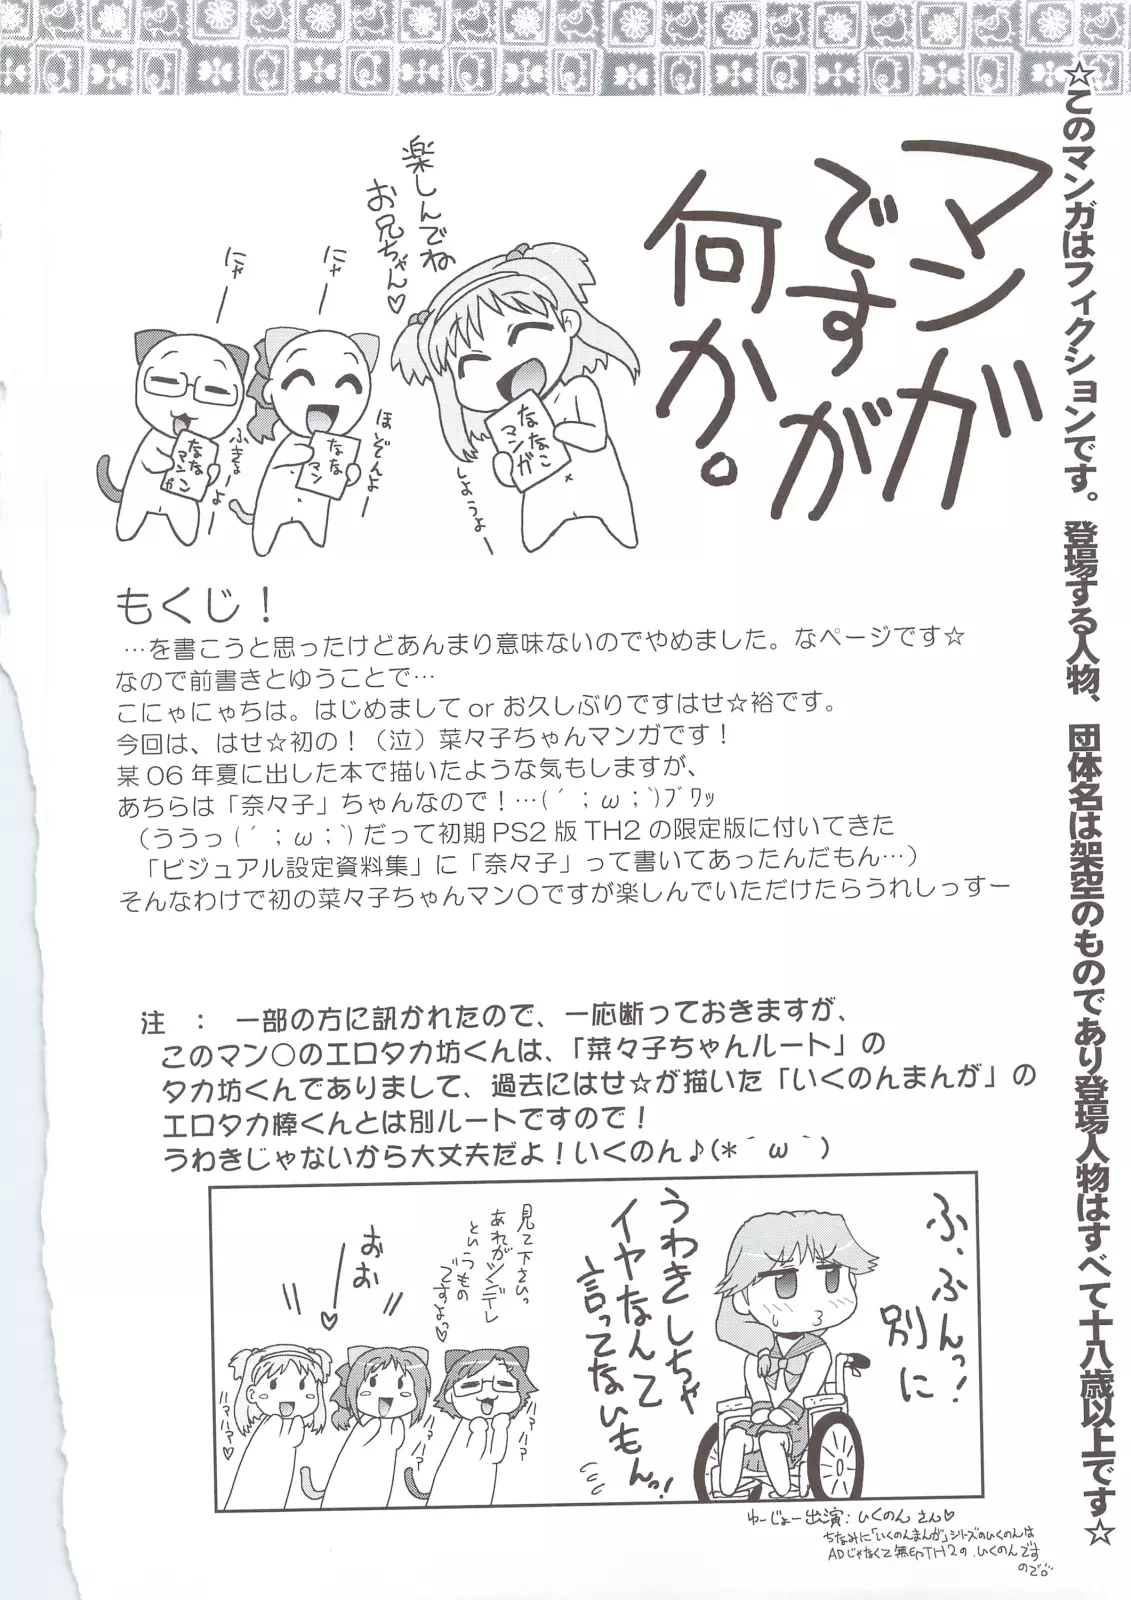 ☆このマンガはフィクションです。登場する人物、団体名は架空のものであり登場人物はすべて十八歳以上です☆
マンガ
ですが
何か。
楽しんでね
お兄ちゃん♡
にゃー
にゃー
ななこ
マンガ
しようよー
なな
マン
ほぞんよー
ななこ
マンガ
ふきょーよー
もくじ！
…を書こうと思ったけどあんまり意味ないのでやめました。なページです☆
なので前書きとゆうことで…
こにゃにゃちは。はじめまして or お久しぶりですはせ☆裕です。
今回は、はせ☆初の！（泣）菜々子ちゃんマンガです！
某06年夏に出した本で描いたような気もしますが、
あちらは「奈々子」ちゃんなので！…(´；ω；`)ﾌﾞﾜｯ
（ううっ(´；ω；`)だって初期PS2版TH2の限定版に付いてきた
「ビジュアル設定資料集」に「奈々子」って書いてあったんだもん…）
そんなわけで初の菜々子ちゃんマン〇ですが楽しんでいただけたらうれしっすー
注　：　一部の方に訊かれたので、一応断っておきますが、
このマン〇のエロタカ坊くんは、「菜々子ちゃんルート」の
タカ坊くんでありまして、過去にはせ☆が描いた「いくのんまんが」の
エロタカ棒くんとは別ルートですので！
うわきじゃないから大丈夫だよ！いくのん♪(*´ω｀)
ふ、ふんっ！
別に
うわきしちゃ
イヤなんて
言ってないもんっ！
見て下さいっ
あれがツンデレ
というもの
ですよっ♡
おお
ー♡
ハァハァ
ハァハァ
ハァハァ♡
ゆーじょー出演：いくのんさん♡
ちなみに「いくのんまんが」シリーズのいくのんは
ADじゃなくて無印TH2の、いくのんです
ので。